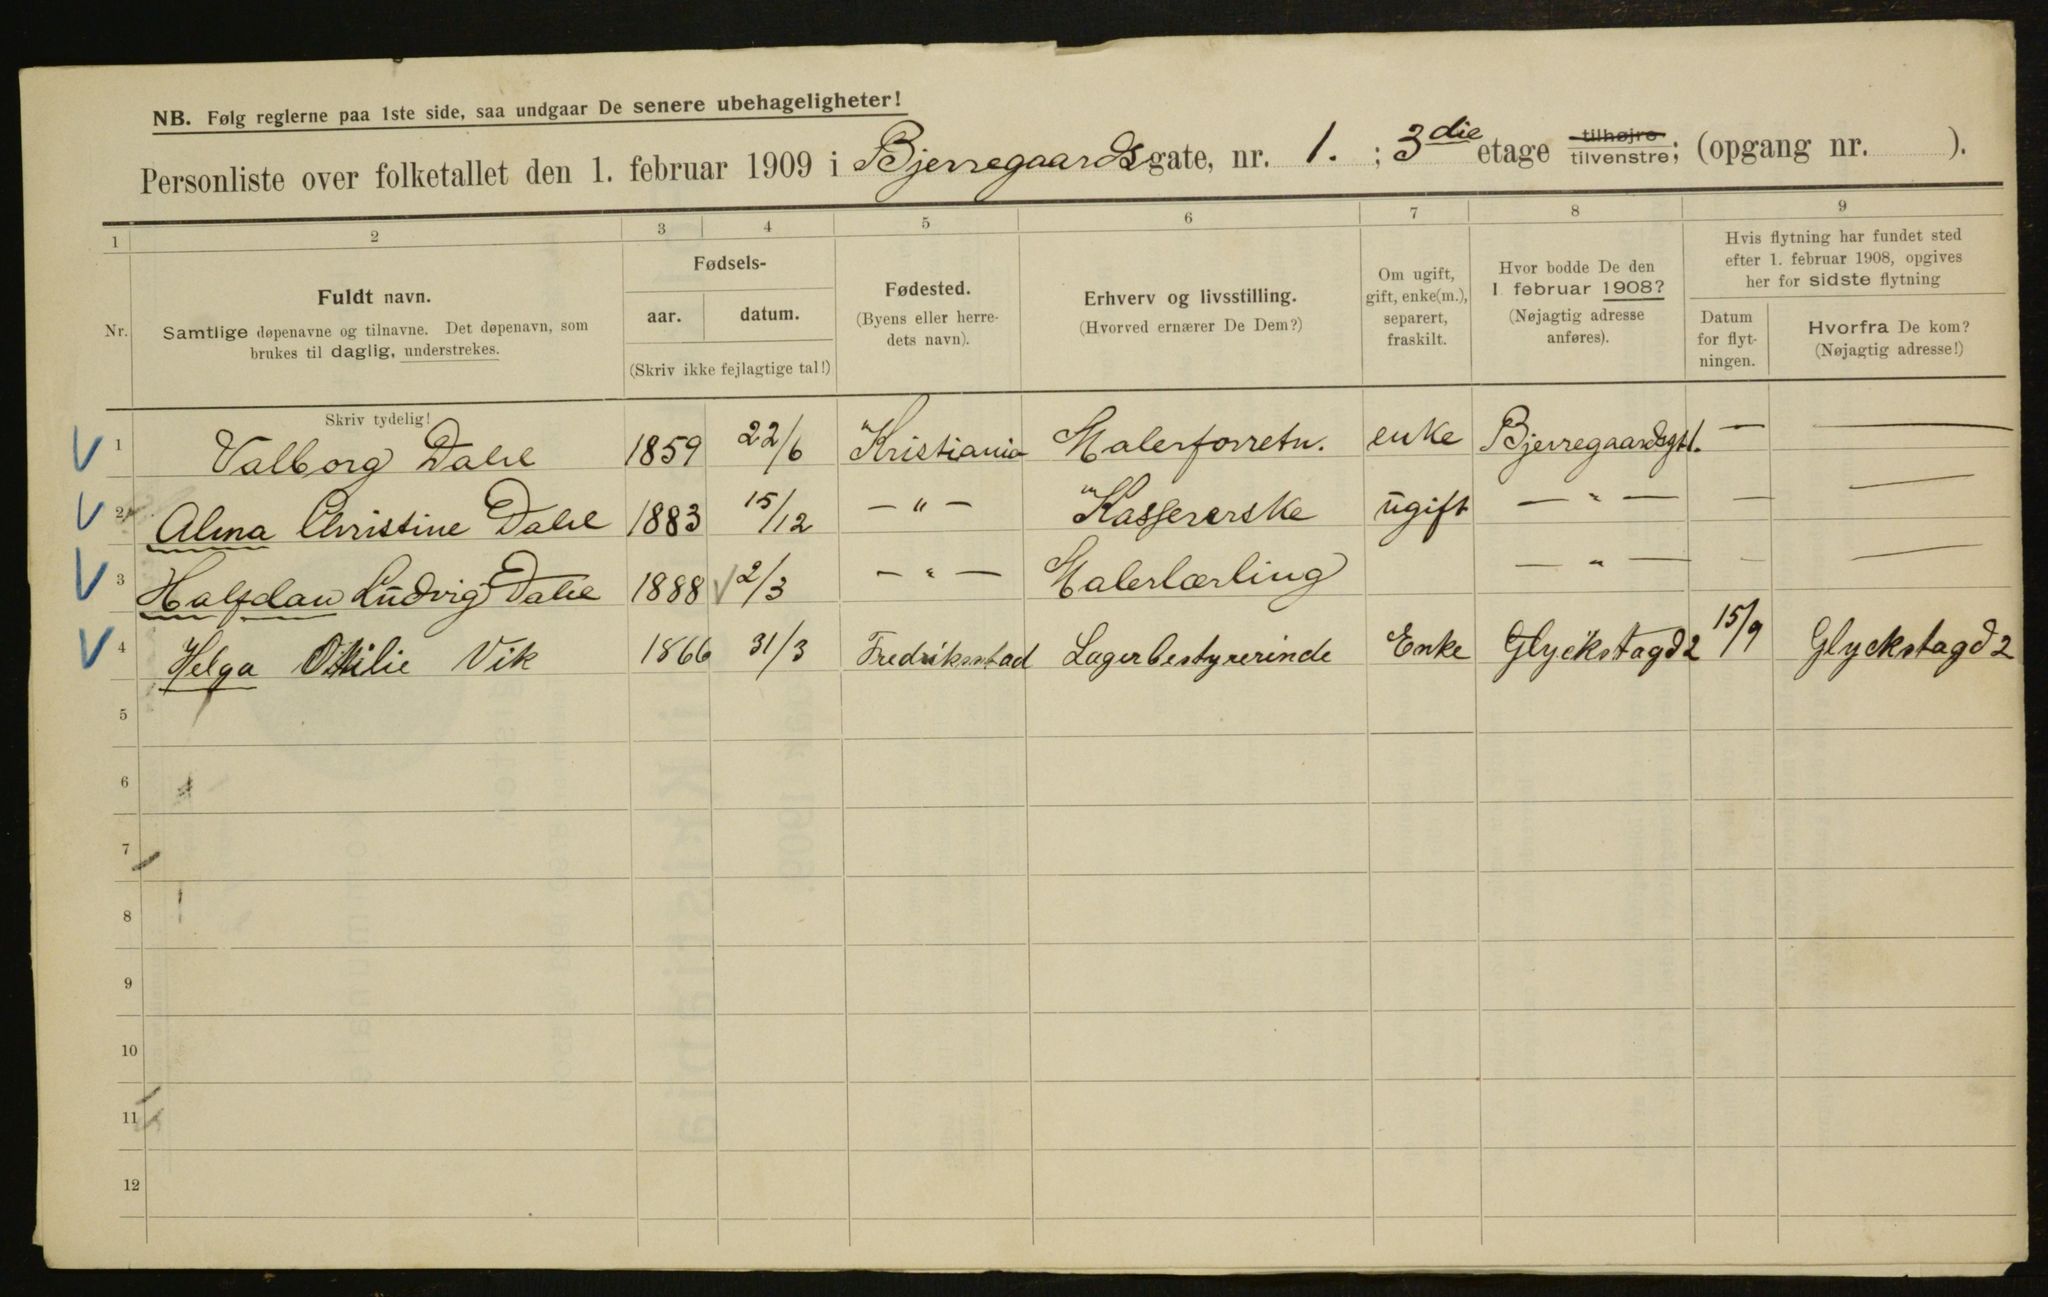 NB. Følg reglerne paa 1ste side, saa undgaar De senere ubehageligheter!
Personliste over folketallet den 1. februar 1909 i Bjerregaardsgate, nr. 1. ; 3die etage tilhøjre tilvenstre; (opgang nr. ).
1 2 3 4 5 6 7 8 9
Nr.
Fuldt navn.
Samtlige døpenavne og tilnavne. Det døpenavn, som
brukes til daglig, understrekes.
Skriv tydelig!
Fødsels-
aar. datum.
(Skriv ikke fejlagtige tal!)
Fødested.
(Byens eller herre-
dets navn).
Erhverv og livsstilling.
(Hvorved ernærer De Dem?)
Om ugift,
gift, enke(m.),
separert,
fraskilt.
Hvor bodde De den
1 februar 1908?
(Nøjagtig adresse
anføres).
Hvis flytning har fundet sted
efter 1. februar 1908, opgives
her for sidste flytning
Datum
for flyt-
ningen.
Hvorfra De kom?
(Nøjagtig adresse!)
1 Valborg Dahl 1859 22/6 Kristiania Malerforretn. enke Bjerregaardsgt 1. — —
2 Alma Christine Dahl 1883 15/12 — " — Kassererske ugift — " — — —
3 Halfdan Ludvig Dahl 1888 2/3 — " — Malerlærling — " — — —
4 Helga Otilie Vik 1866 31/3 Fredriksstad Lagerbestyrerinde Enke Glyckstagd 2 15/9 Glyckstagd 2
5
6
7
8
9
10
11
12